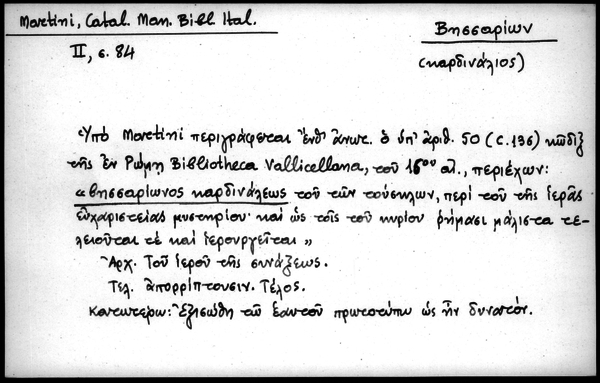 Martini, Catal. Man. Bibl. Ital.
II, σ. 84
Βησσαρίων
(καρδινάλιος)
Ὑπὸ Martini περιγράφεται ἔνθ' ἄνωτ. ὁ ὑπ' ἀριθ. 50 (C. 136) κῶδιξ
τῆς ἐν Ρώμῃ Bibliotheca Vallicellana, τοῦ 16ου αἰ., περιέχων:
« Βησσαρίωνος καρδινάλεως τοῦ τῶν τούσκλων, περὶ τοῦ τῆς ἱερᾶς
εὐχαριστείας μυστηρίου· καὶ ὡς τοῖς τοῦ κυρίου ῥήμασι μάλιστα τε-
λειοῦται τὲ καὶ ἱερουργεῖται »
Ἀρχ. Τοῦ ἱεροῦ τῆς συνάξεως.
Τελ. ἀπορρίπτουσιν. Τέλος.
Κατωτέρω: Ἐξισώθη τῶ ἑαυτοῦ πρωτοτύπω ὡς ἦν δυνατόν.